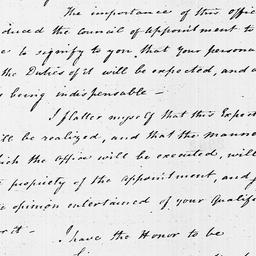 The importance of this offic
duced the council of Appointment to
e to signify to you that your persona
the Duties of it will be expected, and a
s being indispensable —
I flatter myself that this Expect
ill be realized, and that the manne
hich the office will be executed, will
e propriety of the appointment, and j
he opinion entertained of your Qualif
I have the Honor to be